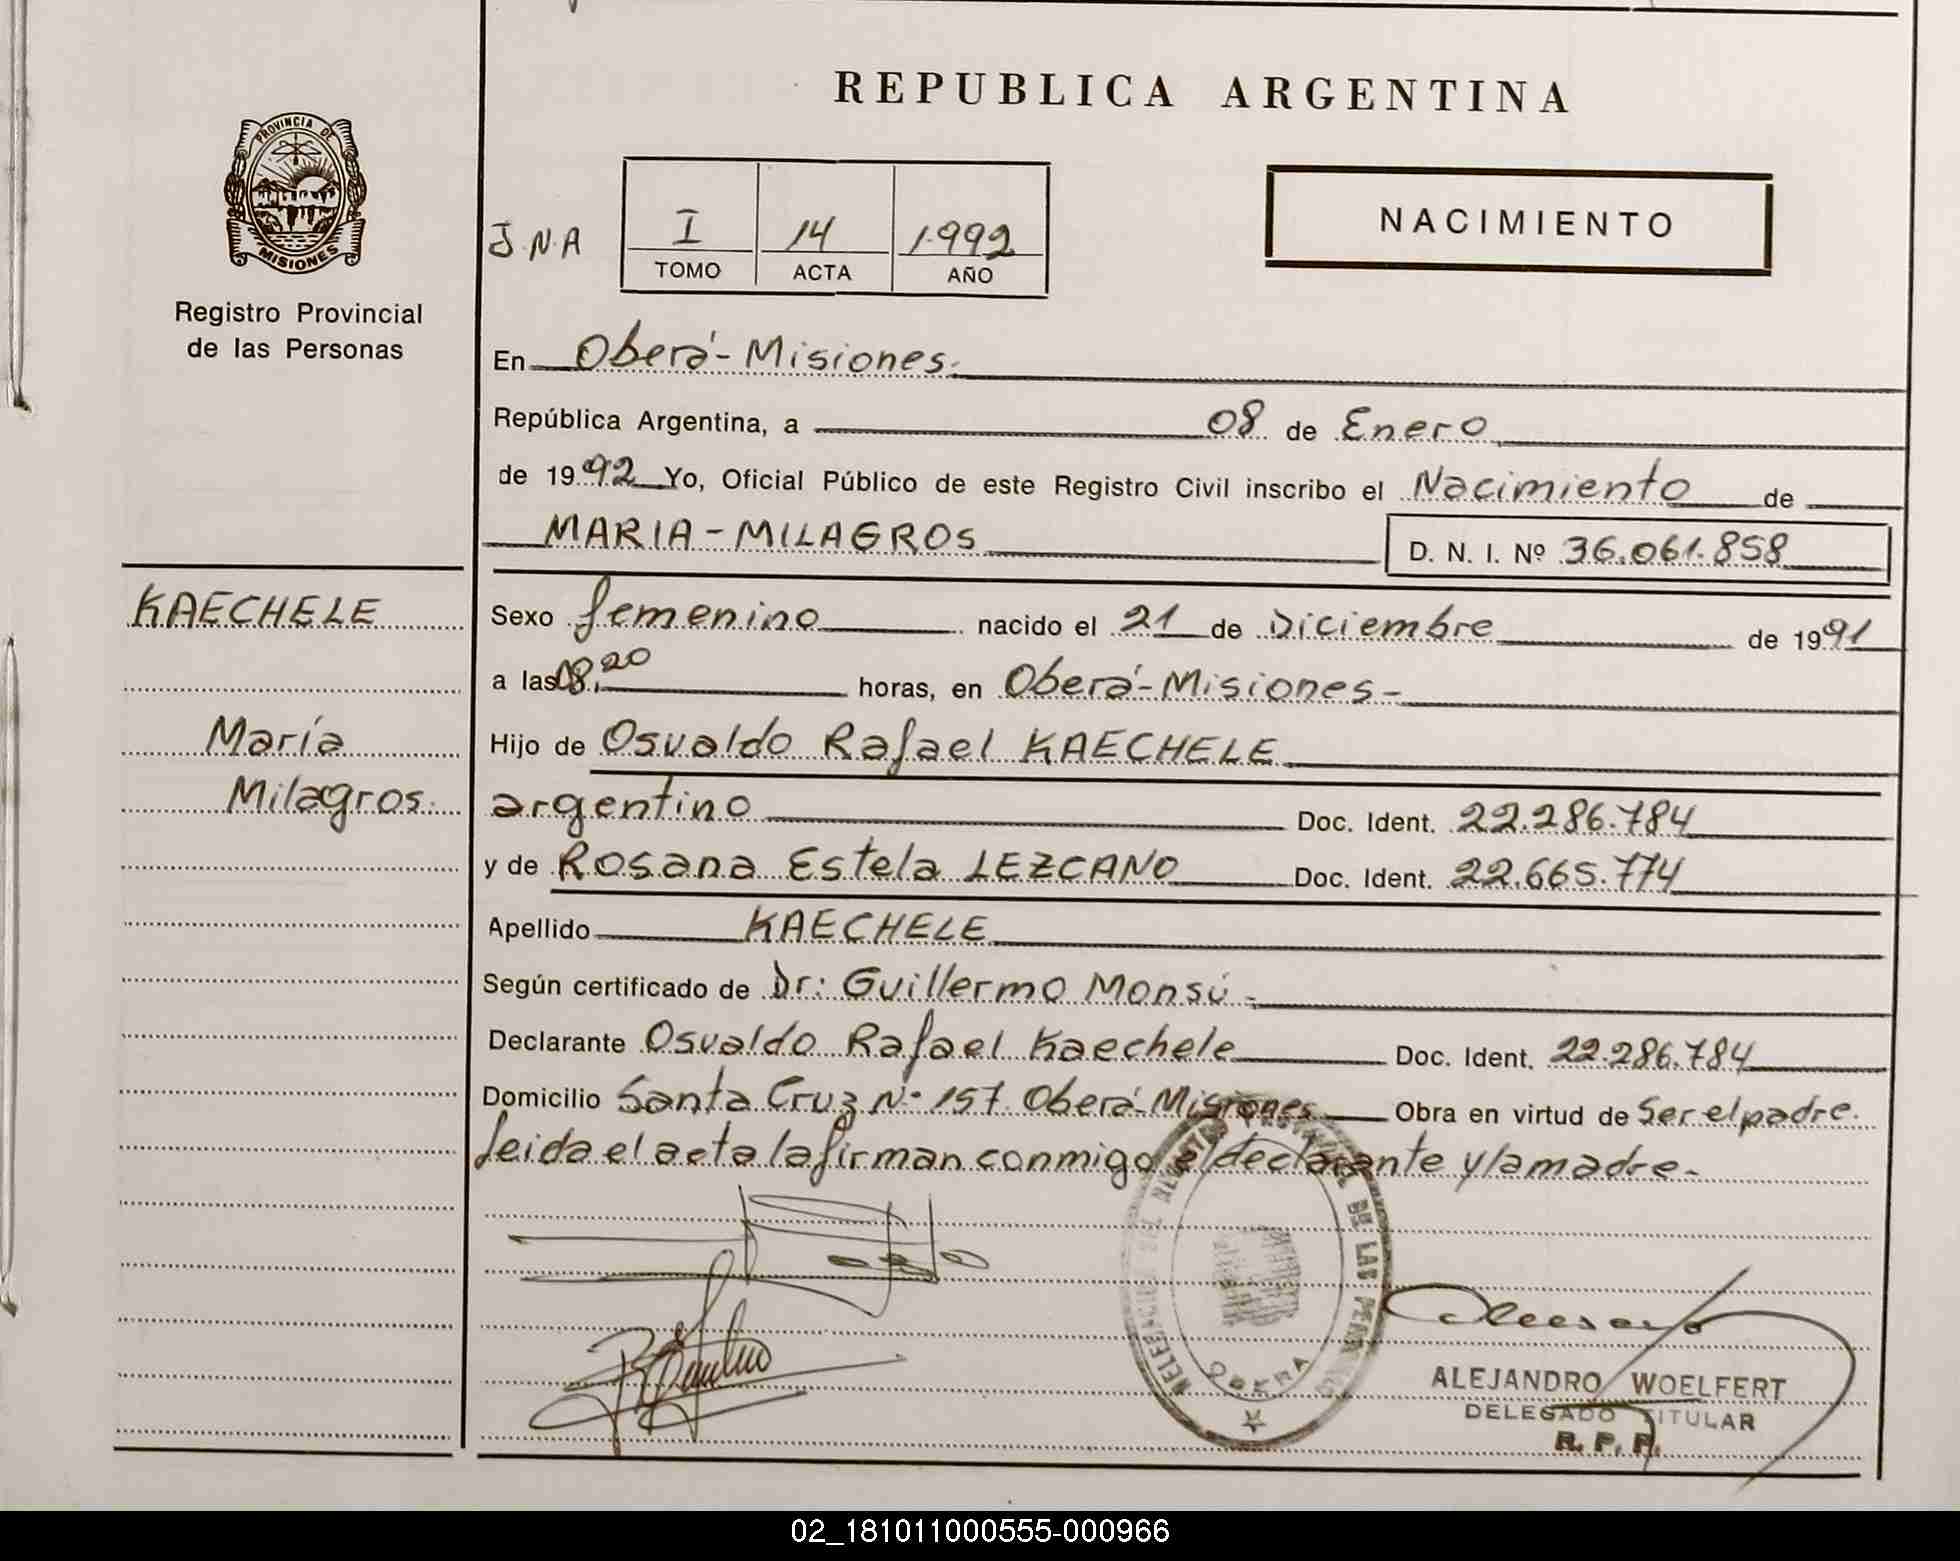 REPUBLICA ARGENTINA
PROVINCIA DE
MISIONES
Registro Provincial
de las Personas
J.N.A
I 14 1.992
TOMO ACTA AÑO
NACIMIENTO
En Oberá - Misiones.
República Argentina, a 08 de Enero
de 1992 Yo, Oficial Público de este Registro Civil inscribo el Nacimiento de
MARIA - MILAGROS
D. N. I. Nº 36.061.858
KAECHELE
María
Milagros.
Sexo femenino nacido el 21 de Diciembre de 1991
a las 08,20 horas, en Oberá - Misiones -
Hijo de Osvaldo Rafael KAECHELE
argentino Doc. Ident. 22.286.784
y de Rosana Estela LEZCANO Doc. Ident. 22.665.774
Apellido KAECHELE
Según certificado de Dr: Guillermo Monsú -
Declarante Osvaldo Rafael Kaechele Doc. Ident. 22.286.784
Domicilio Santa Cruz Nº 157. Oberá - Misiones Obra en virtud de Ser el padre.
leida el acta la firman conmigo el declarante y la madre -
DE LAS
OBERA
ALEJANDRO WOELFERT
DELEGADO TITULAR
R. P. P.
02_181011000555-000966